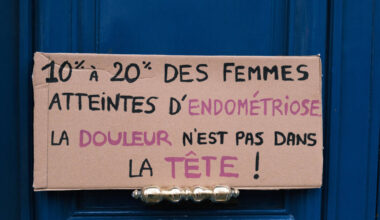 10% à 20% DES FEMMES
ATTEINTES D'ENDOMÉTRIOSE
LA DOULEUR N'EST PAS DANS
LA TÊTE !